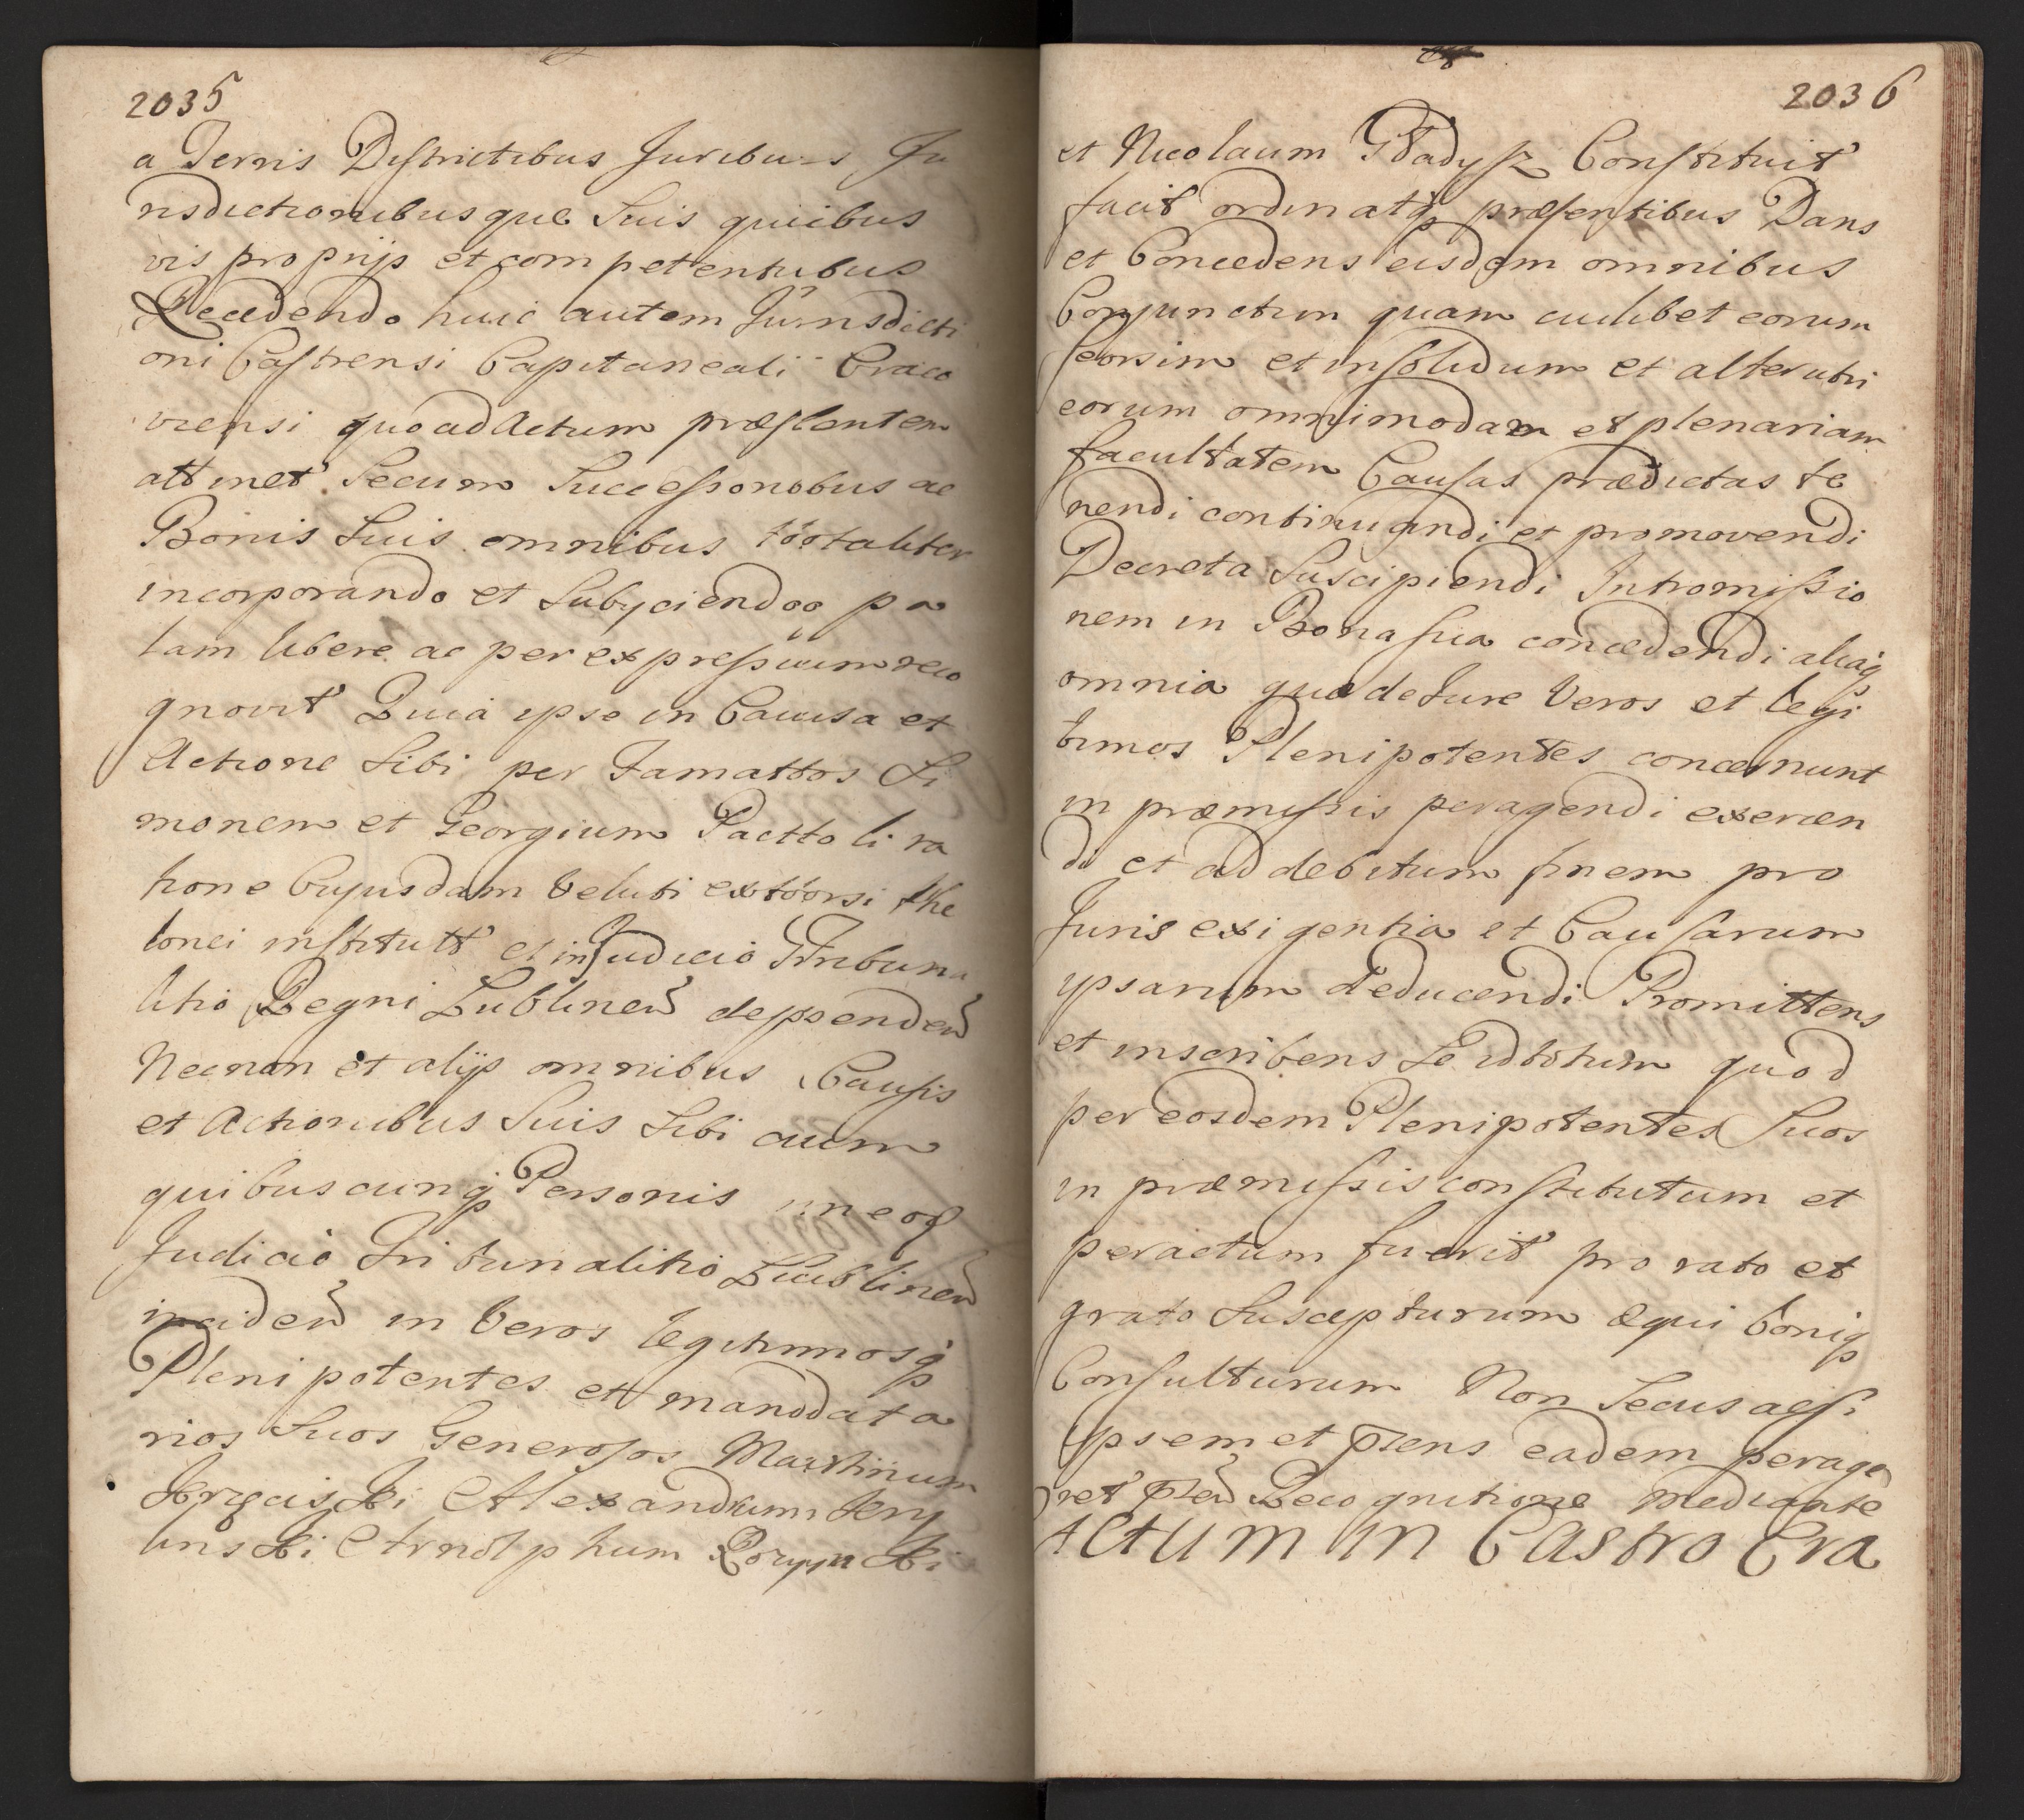 2035
a Terris Districtibus Juribus Ju
risdictionibusque Suis quiibus
vis proprijs et competentibus
Recedendo huic autem Jurisdicti
oni Castrensi Capitaneali Craco
viensi quoad Actum præsentem
attinet Secum Successoribus ac
Bonis Suis omnibus tootaliter
incorporando et Subijciendoo pa
lam libere ac per expressuum reco
gnovit Quia ipse in Caussa et
Actione Sibi per Famattos Si
monem et Georgium Pactto li ra
tione Cujusdam Veluti extoorsi the
lonei institutt et in Judicio Tribuna
litio Regni Lublinen dependen
Necnon et alijs omnibus Causis
et Actionibus Suis Sibi cuum
quibuscunq Personis in eod
Judicio Tribunalitio Lublinen
inciden in Veros legitimosq
Plenipotentes ett manddata
rios Suos Generosos Marttinum
Alexandrum Jery
linski Arnolphum
2036
et Nicolaum Gładysz Constituit
facit ordinatq præsentibus Dans
et Concedens eisdem omnibus
Conjunctim quam cuilibet eorum
seorsim et insolidum et alterutri
eorum omnimodam et plenariam
facultatem Causas prædictas te
nendi continuandi et promovendi
Decreta Suscipiendi Intromissio
nem in Bona sua concedendi aliaq
omnia quæ de Jure Veros et legi
timos Plenipotentes concernunt
in præmissis peragendi exercen
di et ad debitum finem pro
Juris exigentia et Causarum
ipsarum deducendi Promittens
et inscribens Se id totum quod
per eosdem Plenipotentes Suos
in præmissis constitutum et
peractum fuerit pro rato et
grato Suscepturum æqui boniq
Consulturum Non Secus acsi
ipsemet præns eadem perage
ret præn Recognitione mediante
Actum in Castro Cra